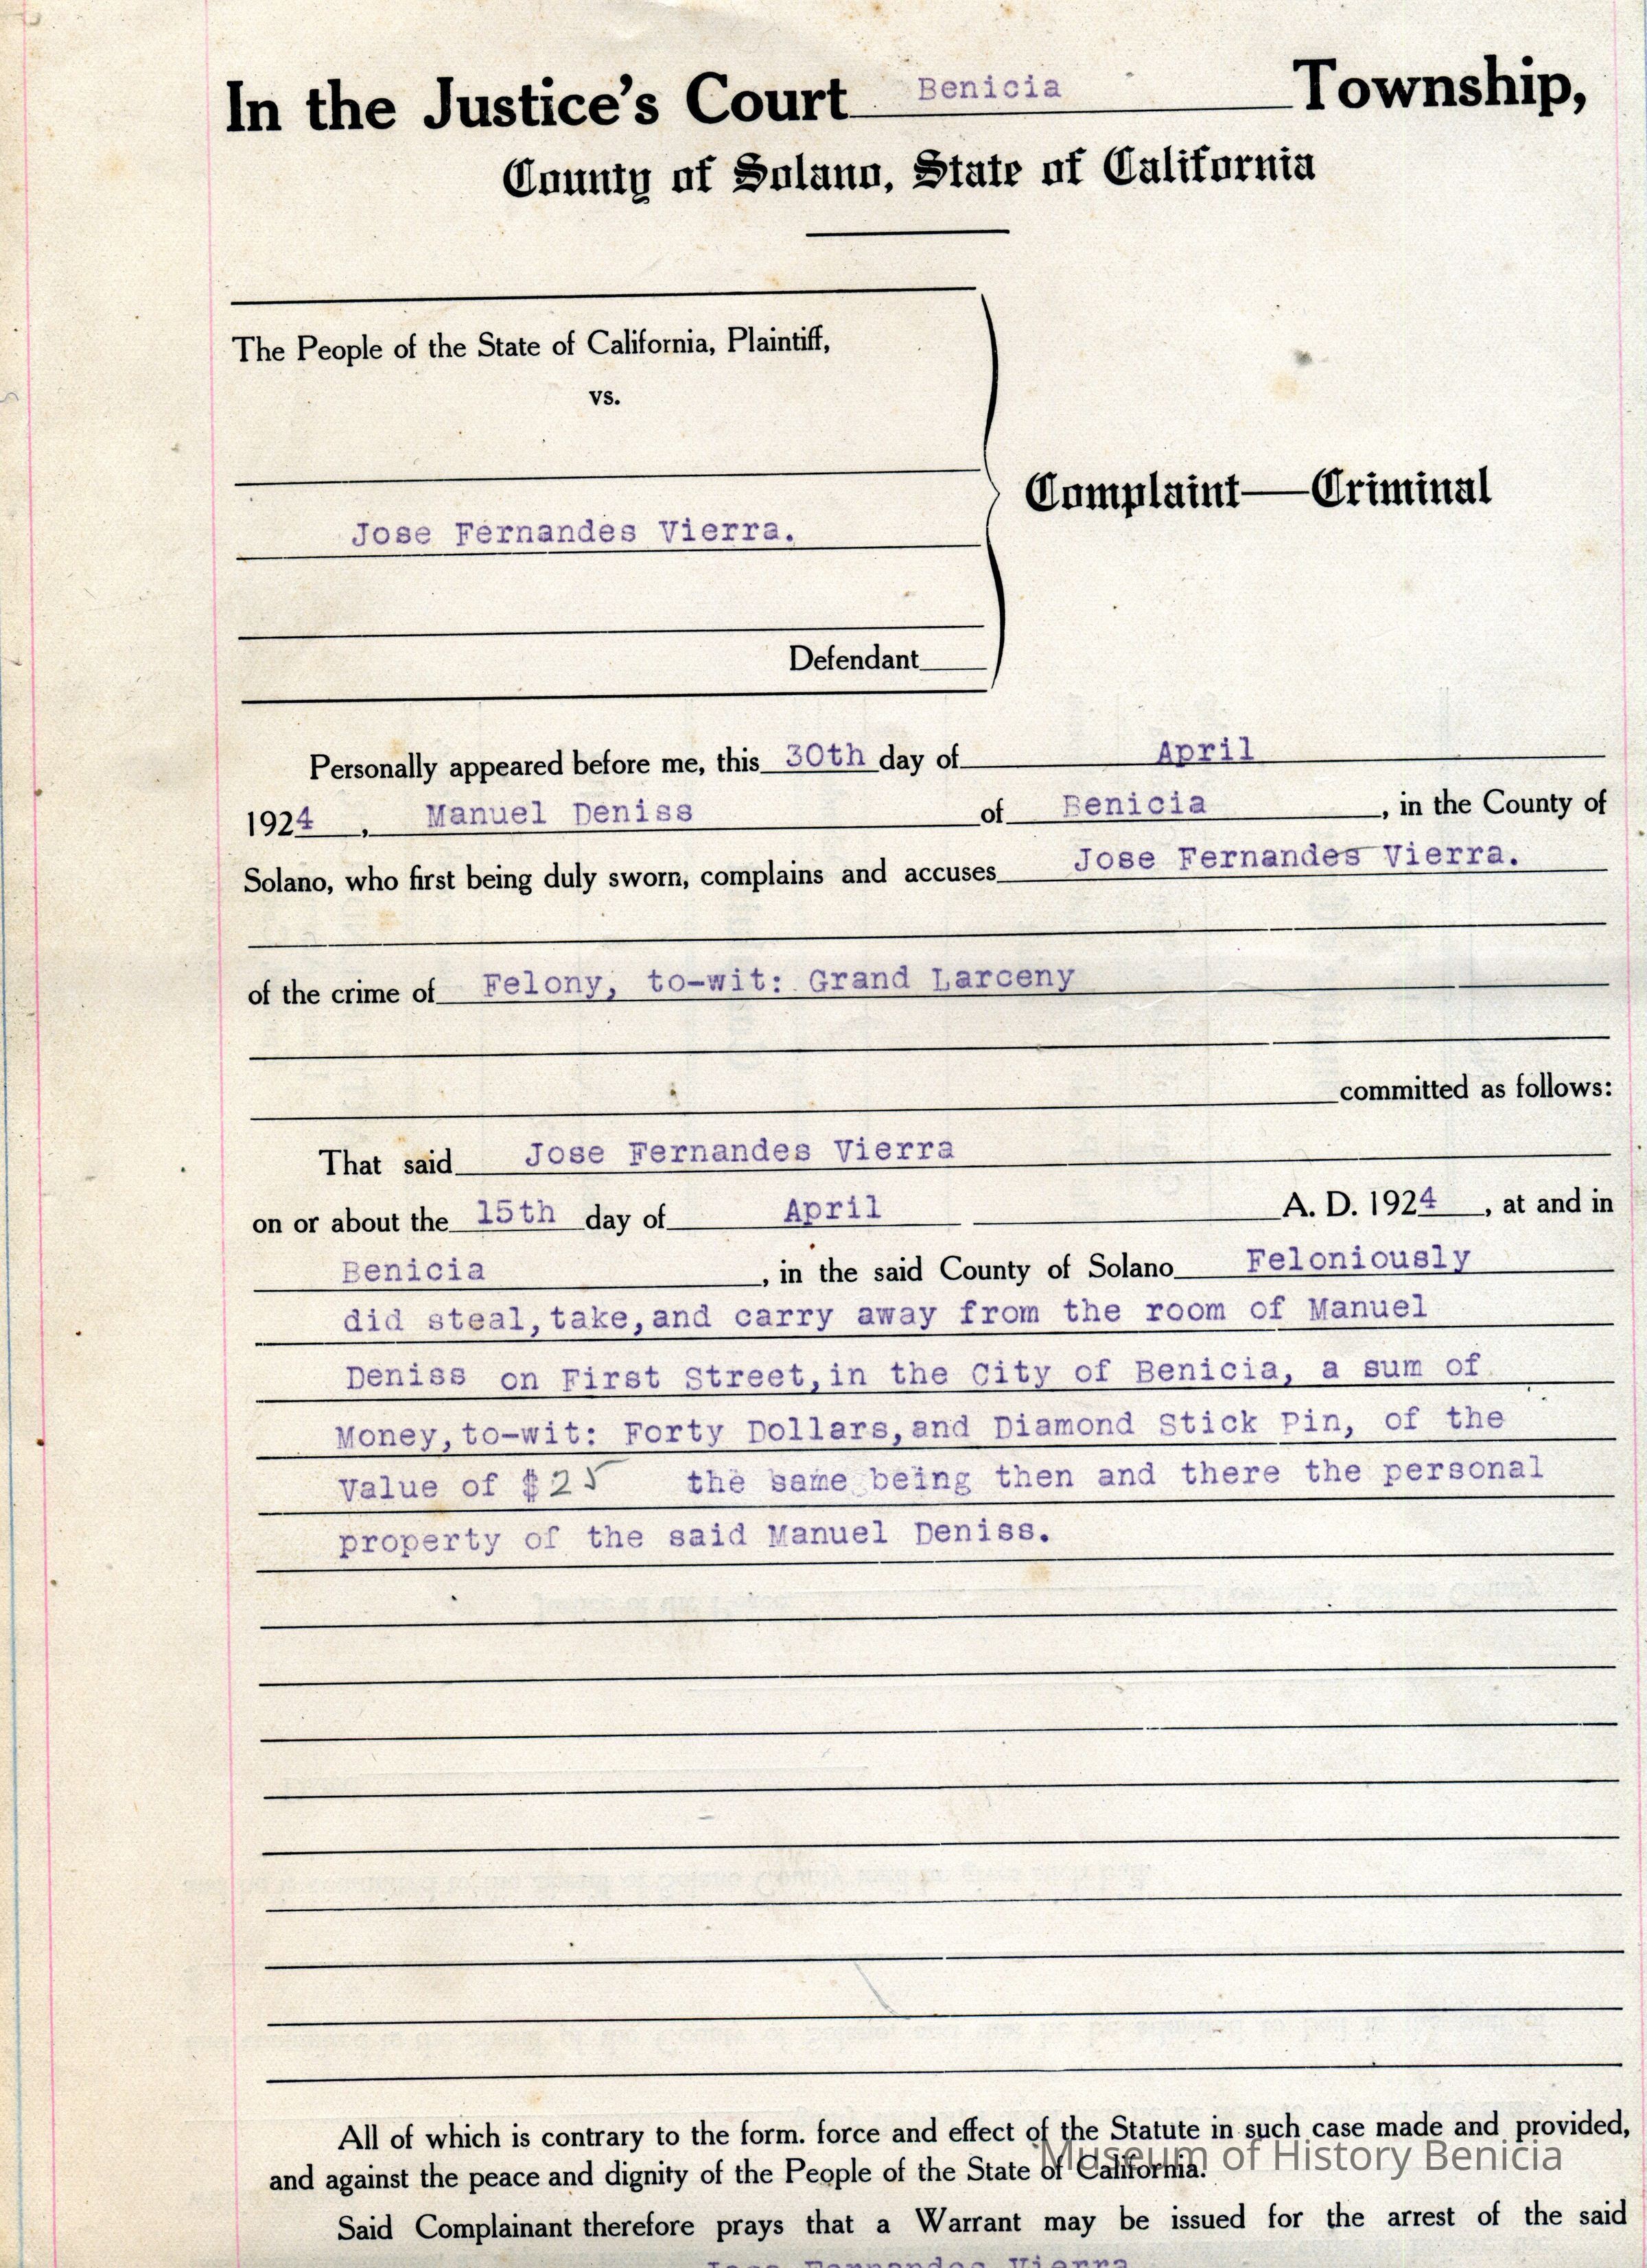 In the Justice's Court Benicia Township,
County of Solano, State of California
The People of the State of California, Plaintiff,
vs.
Jose Fernandes Vierra.
Defendant
Complaint—Criminal
Personally appeared before me, this 30th day of April
1924 , Manuel Deniss of Benicia , in the County of
Solano, who first being duly sworn, complains and accuses Jose Fernandes Vierra.
of the crime of Felony, to-wit: Grand Larceny
committed as follows:
That said Jose Fernandes Vierra
on or about the 15th day of April A. D. 1924 , at and in
Benicia , in the said County of Solano Feloniously
did steal,take,and carry away from the room of Manuel
Deniss on First Street,in the City of Benicia, a sum of
Money,to-wit: Forty Dollars,and Diamond Stick Pin, of the
Value of $25 the same being then and there the personal
property of the said Manuel Deniss.
All of which is contrary to the form. force and effect of the Statute in such case made and provided,
and against the peace and dignity of the People of the State of California.
Museum of History Benicia
Said Complainant therefore prays that a Warrant may be issued for the arrest of the said
Jose Fernandes Vierra